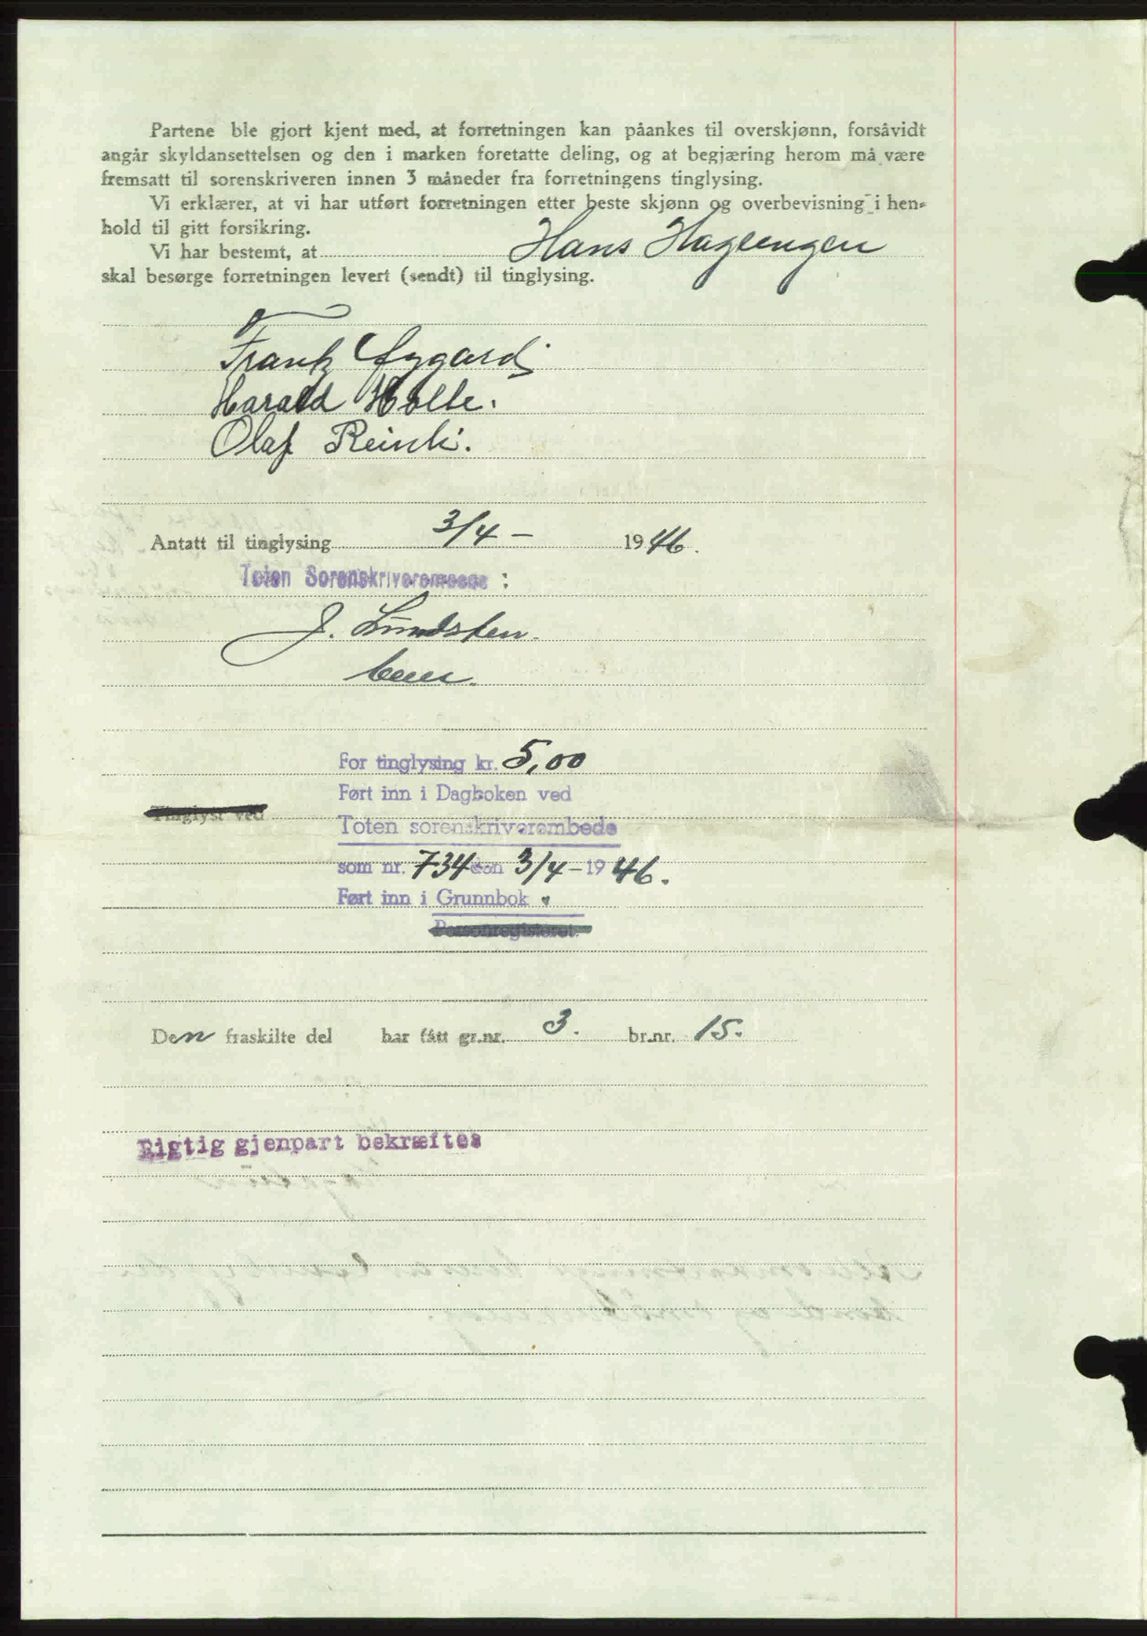 Partene ble gjort kjent med, at forretningen kan påankes til overskjønn, forsåvidt
angår skyldansettelsen og den i marken foretatte deling, og at begjæring herom må være
fremsatt til sorenskriveren innen 3 måneder fra forretningens tinglysing.
Vi erklærer, at vi har utført forretningen etter beste skjønn og overbevisning i hen-
hold til gitt forsikring.
Vi har bestemt, at Hans Haglengen
skal besørge forretningen levert (sendt) til tinglysing.
Frantz
Harald Holte.
Olaf
Antatt til tinglysing 3/4 - 1946.
Toten Sorenskriverembede :
J. Lundsten
For tinglysing kr. 5,00
Ført inn i Dagboken ved
Tinglyst ved
Toten sorenskriverembede
som nr. 734 den 3/4 - 1946.
Ført inn i Grunnbok
Personregisteret.
Den fraskilte del har fått gr.nr. 3. br.nr. 15.
Rigtig gjenpart bekræftes